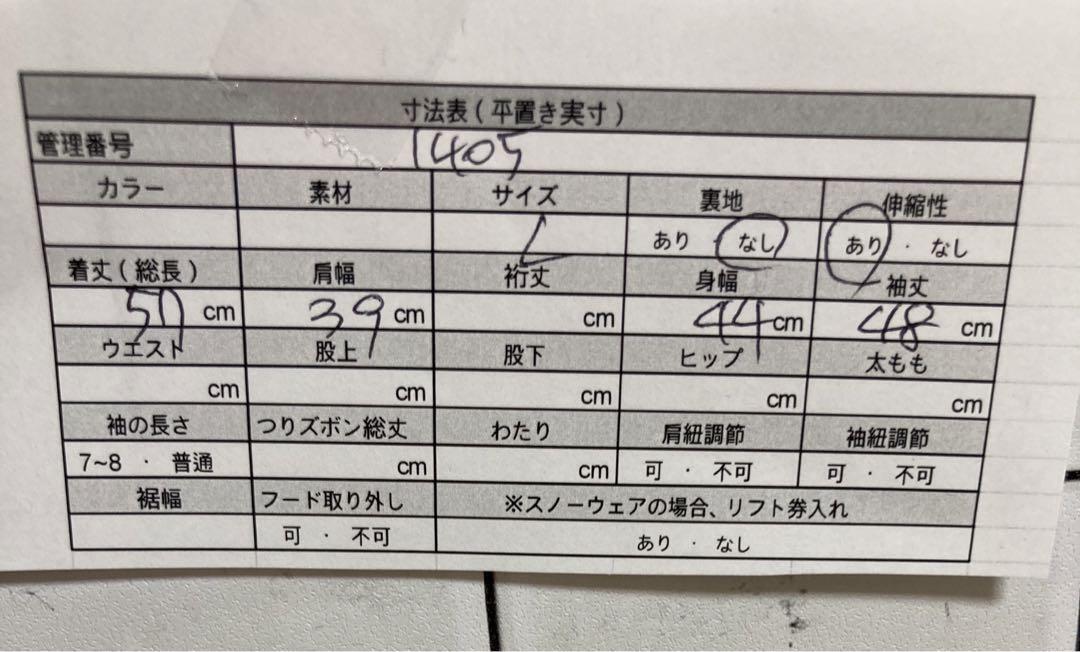 寸法表(平置き実寸)
管理番号 1405
カラー 素材 サイズ 裏地 伸縮性
L あり ・ なし あり ・ なし
着丈(総長) 肩幅 裄丈 身幅 袖丈
cm 39 cm cm 44 cm 48 cm
ウエスト 股上 股下 ヒップ 太もも
cm cm cm cm cm
袖の長さ つりズボン総丈 わたり 肩紐調節 袖紐調節
7~8 ・ 普通 cm cm 可 ・ 不可 可 ・ 不可
裾幅 フード取り外し ※スノーウェアの場合、リフト券入れ
可 ・ 不可 あり ・ なし